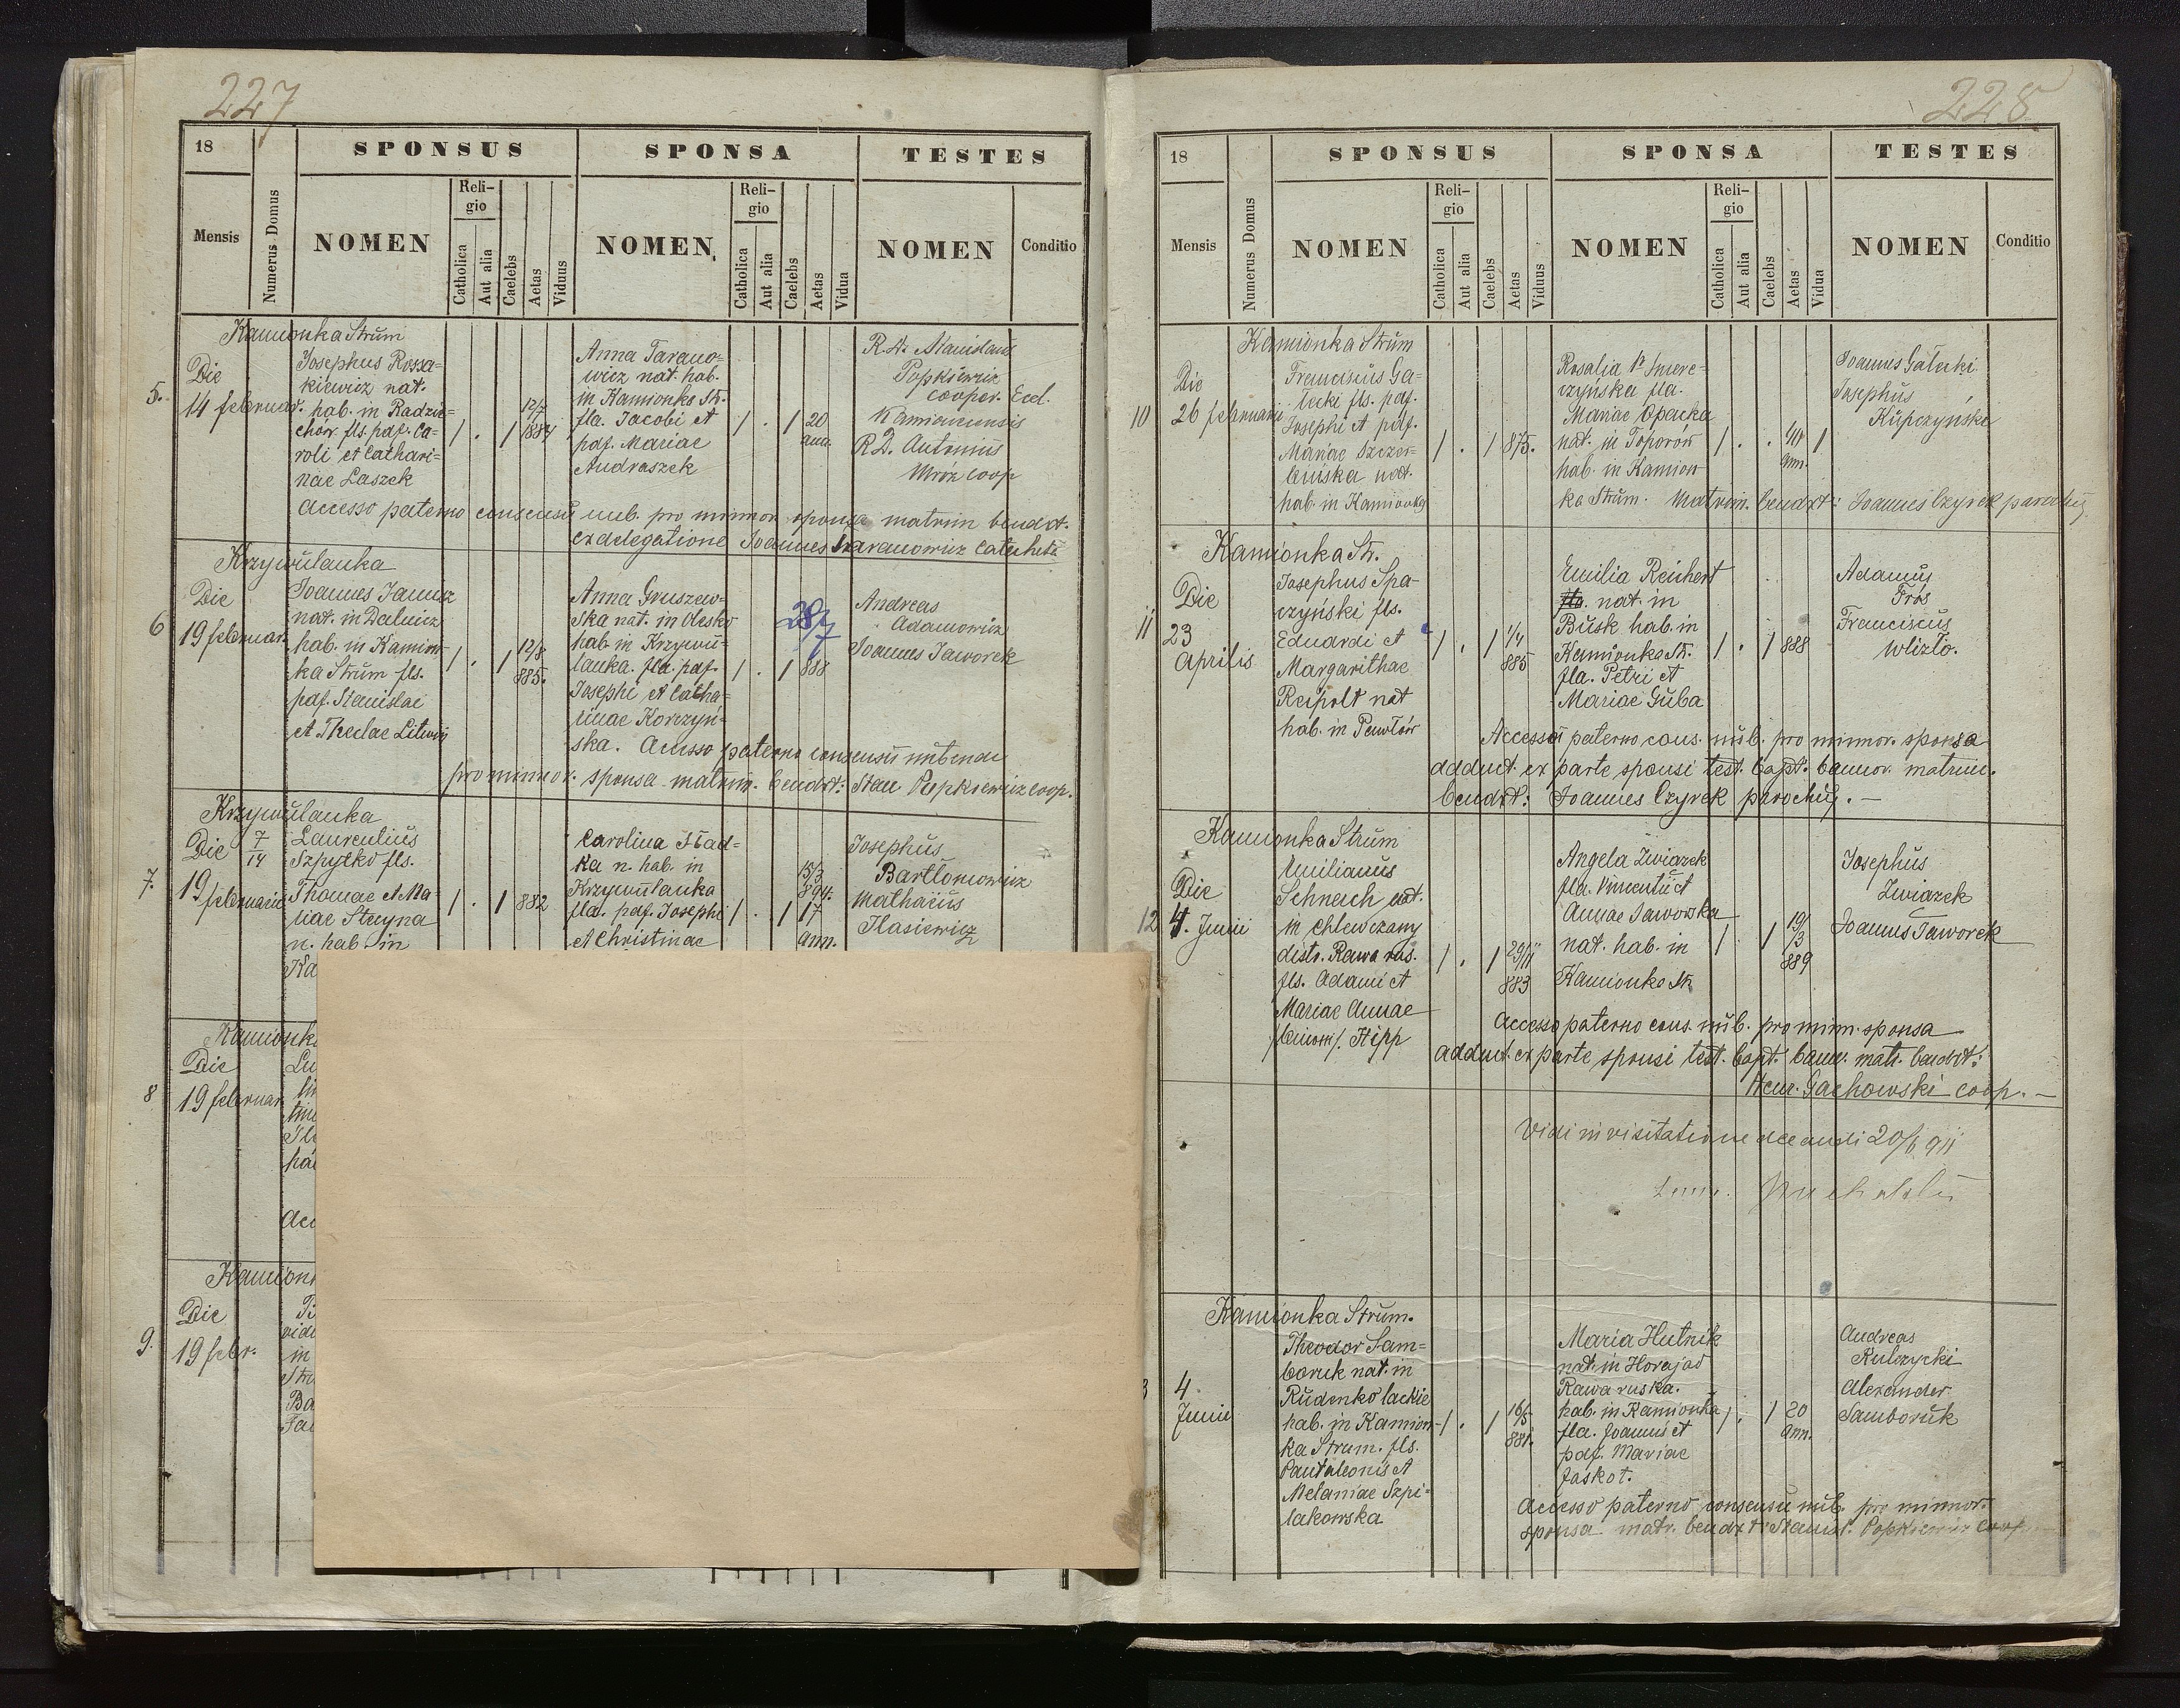 227
18
SPONSUS
SPONSA
TESTES
Mensis
Numerus Domus
NOMEN
Reli-
gio
Catholica
Aut alia
Caelebs
Aetas
Viduus
NOMEN
Reli-
gio
Catholica
Aut alia
Caelebs
Aetas
Vidua
NOMEN
Conditio
Kamionka Strum
5.
Die
14 februar.
Josephus Rossa=
kiewicz nat.
hab. in Radzie=
chów fls. pdf. Ca=
roli et Cathari=
nae Laszek
1 . 1
12/7
1884
Anna Tarano=
wicz nat. hab.
in Kamionka Str.
fla. Jacobi et
pdf. Mariae
Andraszek
1 . 1 20
ann.
R.D. Stanislaus
Popkiewicz
cooper. Eccl.
Kamionensis
R.D. Antonius
Mróz coop
Accesso paterno consensu nub. pro minor. sponsa matrim bendxt.
ex delegatione Joannes Taranowicz Catecheta
Krzywulanka
6
Die
19 februar.
Joannes Janusz
nat. in Dalnicz
hab. in Kamion=
ka Strum fls.
pdf. Stanislai
et Theclae Litwin
1 . 1
12/8
885.
Anna Gruszew=
ska nat. in Olesko
hab. in Krzywu=
lanka. fla. pdf.
Josephi et Catha=
rinae Korczyń=
ska.
1 . 1 888
28/7
Andreas
Adamowicz
Joannes Jaworek
Accesso paterno consensu nubendi
pro minor. sponsa matrim. bendxt: Stan Popkiewicz coop.
Krzywulanka
7.
Die 7/14
19 februarii
Laurentius
Szpytko fls.
Thomae et Ma=
riae Stecyna
n. hab. in
Ka
1 . 1 882
Carolina Hład=
ka n. hab. in
Krzywulanka
fla. pdf. Josephi
et Christinae
1 . 1 17
ann.
15/3
894.
Josephus
Bartlomowicz
Mathaeus
Ilasiewicz
Kamionk
8
Die
19 februar.
Lu
Acc
Kamion
9.
Die
19 febr.
in
Stru
Ba
228
18
SPONSUS
SPONSA
TESTES
Mensis
Numerus Domus
NOMEN
Reli-
gio
Catholica
Aut alia
Caelebs
Aetas
Viduus
NOMEN
Reli-
gio
Catholica
Aut alia
Caelebs
Aetas
Vidua
NOMEN
Conditio
Kamionka Strum
10
Die
26 februarii
Franciscus Ga-
łecki fls. pdf.
Josephi et pdf.
Mariae Szczer-
bińska nat.
hab. in Kamionka
1 . 1 875.
Rosalia
czyńska fla.
Mariae Opacka
nat. in Toporów
hab. in Kamion
ka Strum.
1 . . 40 1
ann.
Joannes Gałecki
Josephus
Kupczyński
Matrim. bendxt: Joannes Czyrek parochus
Kamionka Str.
11
Die
23
Aprilis
Josephus Spa-
czyński fls.
Eduardi et
Margarithae
Reipolt nat
hab. in Pawłów
1 . 1
1/4
885
Emilia Reichert
fla. nat. in
Busk hab. in
Kamionka Str.
fla. Petri et
Mariae Guba
1 . 1 888
Adamus
Tros
Franciscus
Wlizło.
Accessu paterno cons. nub. pro minor. sponsa
adduct. ex parte sponsi test. bapt. bannor. matrim.
bendxt: Joannes Czyrek parochus. —
Kamionka Strum
12
Die
4. Junii
Emilianus
Schnerch nat.
in Chlewczany
distr. Rawa rus.
fls. Adami et
Mariae Annae
/binom/. Hipp
1 . 1
29/11
883
Angela Zwiazek
fla. Vincentii et
Annae Jaworska
nat. hab. in
Kamionka Str.
1 1
19/3
889
Josephus
Zwiazek
Joannes Jaworek
Accesso paterno cons. nub. pro minn. sponsa
adduct. ex parte sponsi test. bapt. bann. matr. bendxt.:
Henr. Gachowski coop. —
Vidi in visitatione decanali 20/6 911
Kamionka Strum.
3
4
Junii
Theodor Sam=
boruk nat. in
Rudenko lackie
hab. in Kamion-
ka Strum. fls.
Pantaleonis et
Melaniae Szpi=
lakowska
1 . 1
16/5
881.
Maria Hutnik
nat. in Horajad
Rawa ruska.
hab. in Kamionka
fla. Joannis et
pdf. Mariae
Jaskot.
1 . 1 20
ann.
Andreas
Kulczycki
Alexander
Samboruk
Accesso paterno consensu nub. pro minnor.
sponsa matr. bendxt: Stanisl. Popkiewicz coop